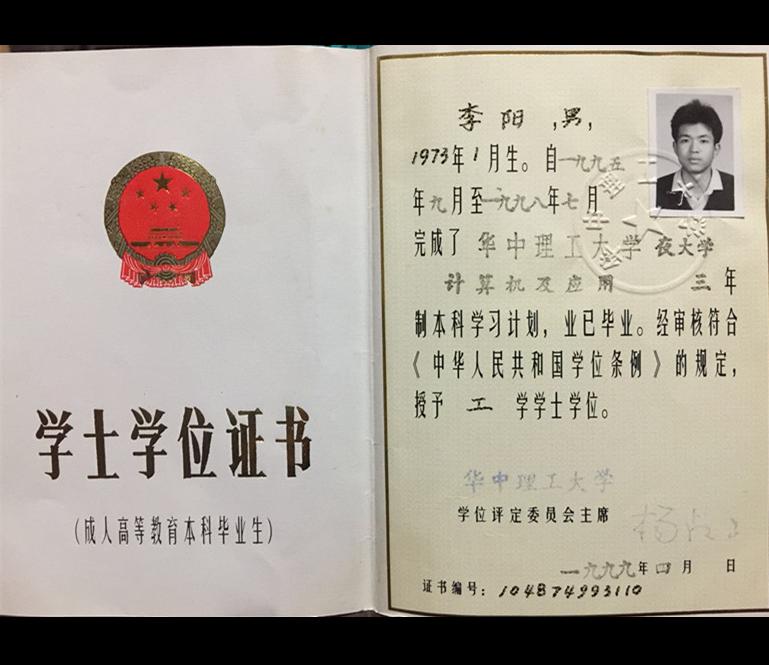 学士学位证书
(成人高等教育本科毕业生)
李阳 ,男,
1973年1月生。自一九九五
年九月至一九九八年七月
完成了 华中理工大学夜大学
计算机及应用 三年
制本科学习计划，业已毕业。经审核符合
《中华人民共和国学位条例》的规定，
授予 工 学学士学位。
华中理工大学
学位评定委员会主席
一九九九年四月 日
证书编号：104874993110